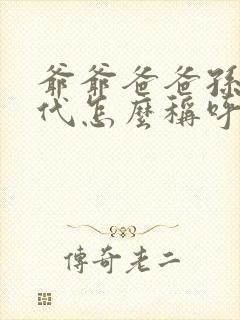 爺爺爸爸孫
代怎麼稱呼
傳奇老二